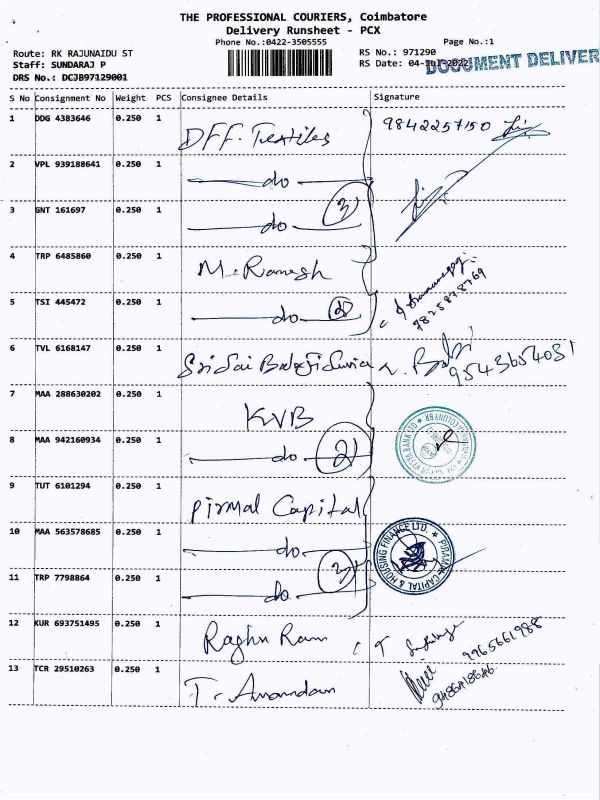 THE PROFESSIONAL COURIERS, Coimbatore
Delivery Runsheet - PCX
Phone No.:0422-3505555 Page No.:1
Route: RK RAJUNAIDU ST RS No.: 971290
Staff: SUNDARAJ P RS Date: 04-Jul-2022 DOCUMENT DELIVER
DRS No.: DCJB97129001
S No Consignment No Weight PCS Consignee Details Signature
1 DDG 4383646 0.250 1 DFF. Textiles 9842257150
2 VPL 939188641 0.250 1 do
3 GNT 161697 0.250 1 do 3
4 TRP 6485860 0.250 1 M. Ramesh
5 TSI 445472 0.250 1 do 2
6 TVL 6168147 0.250 1 Sri Sai Balaji 9543654031
7 MAA 288630202 0.250 1 KVB
8 MAA 942160934 0.250 1 do 2
9 TUT 6101294 0.250 1 Pirmal Capital
10 MAA 563578685 0.250 1 do PIRAMAL CAPITAL & HOUSING FINANCE LTD.
11 TRP 7798864 0.250 1 do 3
12 KUR 693751495 0.250 1 Raghu Ram 9965661988
13 TCR 29510263 0.250 1 T. Anandan